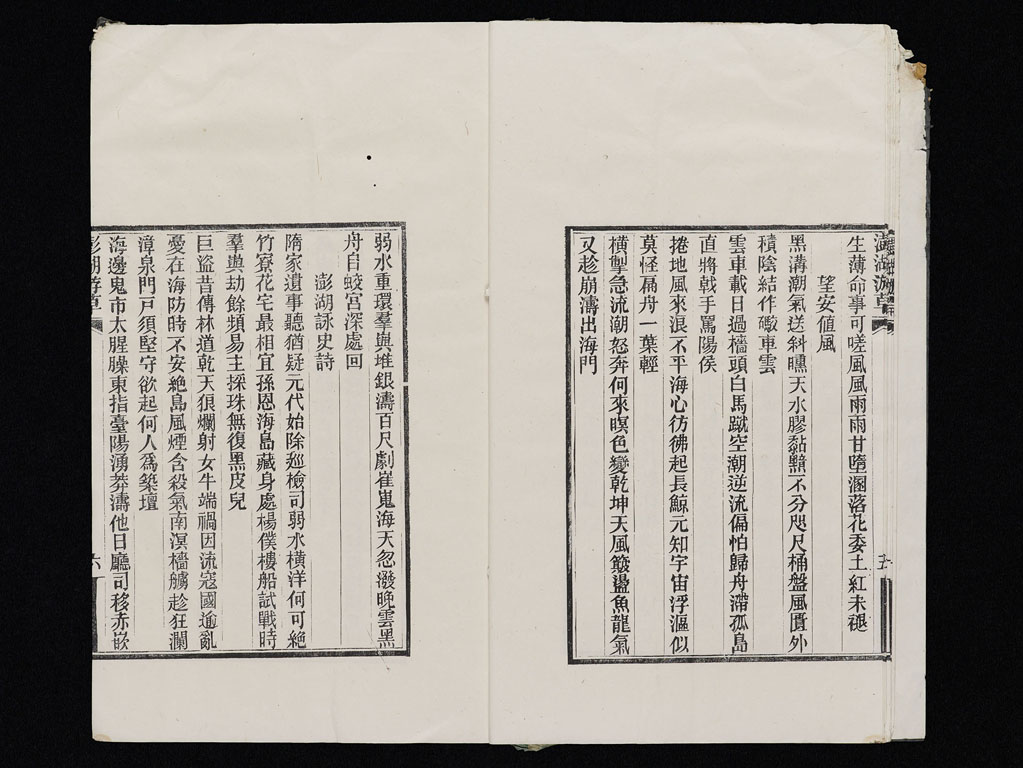 澎湖游草
五
生薄命事可嗟風風雨雨甘墮溷落花委土紅未褪
望安值風
黑溝潮氣送斜曛天水膠黏黯不分咫尺桶盤風匱外
積陰結作礮車雲
雲車載日過檣頭白馬蹴空潮逆流偏怕歸舟滯孤島
直將戟手罵陽侯
捲地風來浪不平海心彷彿起長鯨元知宇宙浮漚似
莫怪扁舟一葉輕
橫掣急流潮怒奔何來暝色變乾坤天風簸盪魚龍氣
又趁崩濤出海門
弱水重環羣輿堆銀濤百尺劇崔嵬海天忽潑晚雲黑
舟自蛟宮深處回
澎湖詠史詩
隋家遺事聽猶疑元代始除廵檢司弱水橫洋何可絶
竹寮花宅最相宜孫恩海島藏身處楊僕樓船試戰時
羣輿劫餘頻易主採珠無復黑皮兒
巨盜昔傳林道乾天狼爛射女牛端禍因流寇國逾亂
憂在海防時不安絶島風煙含殺氣南溟檣艣趁狂瀾
漳泉門戸須堅守欲起何人爲築壇
海邊鬼市太腥臊東指臺陽湧莽濤他日廳司移赤嵌
澎湖游草
六